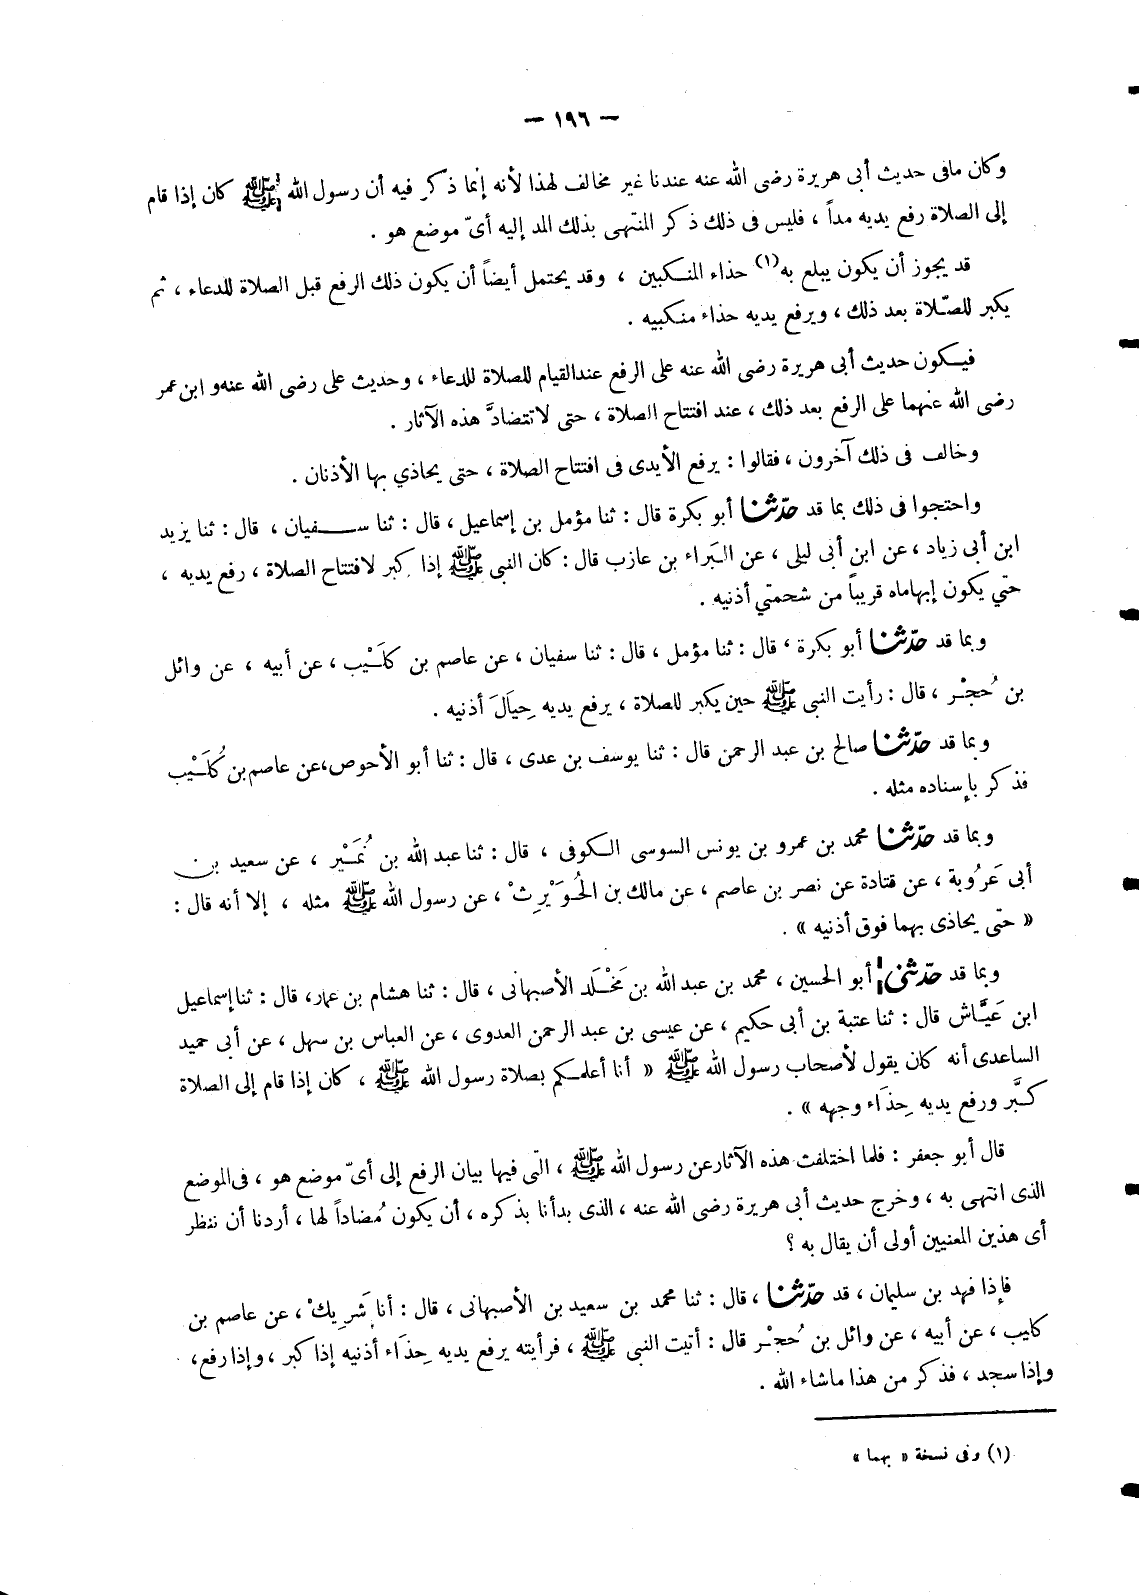 — ١٩٦ —
وكان مافى حديث أبى هريرة رضى الله عنه عندنا غير مخالف لهذا لأنه إنما ذكر فيه أن رسول الله ﷺ كان إذا قام
إلى الصلاة رفع يديه مداً ، فليس فى ذلك ذكر المنتهى بذلك المد إليه أىّ موضع هو .
قد يجوز أن يكون يبلع به(١) حذاء المنكبين ، وقد يحتمل أيضاً أن يكون ذلك الرفع قبل الصلاة للدعاء ، ثم
يكبر للصّلاة بعد ذلك ، ويرفع يديه حذاء منكبيه .
فيكون حديث أبى هريرة رضى الله عنه على الرفع عندالقيام للصلاة للدعاء ، وحديث على رضى الله عنهو ابن عمر
رضى الله عنهما على الرفع بعد ذلك ، عند افتتاح الصلاة ، حتى لاتتضادَّ هذه الآثار .
وخالف فى ذلك آخرون ، فقالوا : يرفع الأيدى فى افتتاح الصلاة ، حتى يحاذي بها الأذنان .
واحتجوا فى ذلك بما قد حدّثنا أبو بكرة قال : ثنا مؤمل بن إسماعيل ، قال : ثنا سفيان ، قال : ثنا يزيد
ابن أبى زياد ، عن ابن أبى ليلى ، عن البَراء بن عازب قال : كان النبى ﷺ إذا كبر لافتتاح الصلاة ، رفع يديه ،
حتي يكون إبهاماه قريباً من شحمتي أذنيه .
وبما قد حدّثنا أبو بكرة ، قال : ثنا مؤمل ، قال : ثنا سفيان ، عن عاصم بن كلَيْب ، عن أبيه ، عن وائل
بن حُجْر ، قال : رأيت النبى ﷺ حين يكبر للصلاة ، يرفع يديه حِيَالَ أذنيه .
وبما قد حدّثنا صالح بن عبد الرحمن قال : ثنا يوسف بن عدى ، قال : ثنا أبو الأحوص،عن عاصم بن كُلَيْب
فذكر بإسناده مثله .
وبما قد حدّثنا محمد بن عمرو بن يونس السوسى الكوفى ، قال : ثنا عبد الله بن نُمَيْر ، عن سعيد بن
أبى عَرُوبة ، عن قتادة عن نصر بن عاصم ، عن مالك بن الحُوَيْرِثْ ، عن رسول الله ﷺ مثله ، إلا أنه قال :
« حتى يحاذى بهما فوق أذنيه » .
وبما قد حدّثنى أبو الحسين ، محمد بن عبد الله بن مَخْلَد الأصبهانى ، قال : ثنا هشام بن عمار، قال : ثنا إسماعيل
ابن عَيَّاش قال : ثنا عتبة بن أبى حكيم ، عن عيسى بن عبد الرحمن العدوى ، عن العباس بن سهل ، عن أبى حميد
الساعدى أنه كان يقول لأصحاب رسول الله ﷺ « أنا أعلمكم بصلاة رسول الله ﷺ ، كان إذا قام إلى الصلاة
كبَّر ورفع يديه حِذَاء وجهه » .
قال أبو جعفر : فلما اختلفت هذه الآثارعن رسول الله ﷺ ، التى فيها بيان الرفع إلى أىّ موضع هو ، فى الموضع
الذى انتهى به ، وخرج حديث أبى هريرة رضى الله عنه ، الذى بدأنا بذكره ، أن يكون مُضاداً لها ، أردنا أن ننظر
أى هذين المعنيين أولى أن يقال به ؟
فإذا فهد بن سليمان ، قد حدّثنا ، قال : ثنا محمد بن سعيد بن الأصبهانى ، قال : أنا شَرِيكْ ، عن عاصم بن
كايب ، عن أبيه ، عن وائل بن حُجْر قال : أتيت النبى ﷺ ، فرأيته يرفع يديه حِذَاء أذنيه إذا كبر ، وإذا رفع،
وإذا سجد ، فذكر من هذا ماشاء الله .
(١) وفى نسخة « بهما »